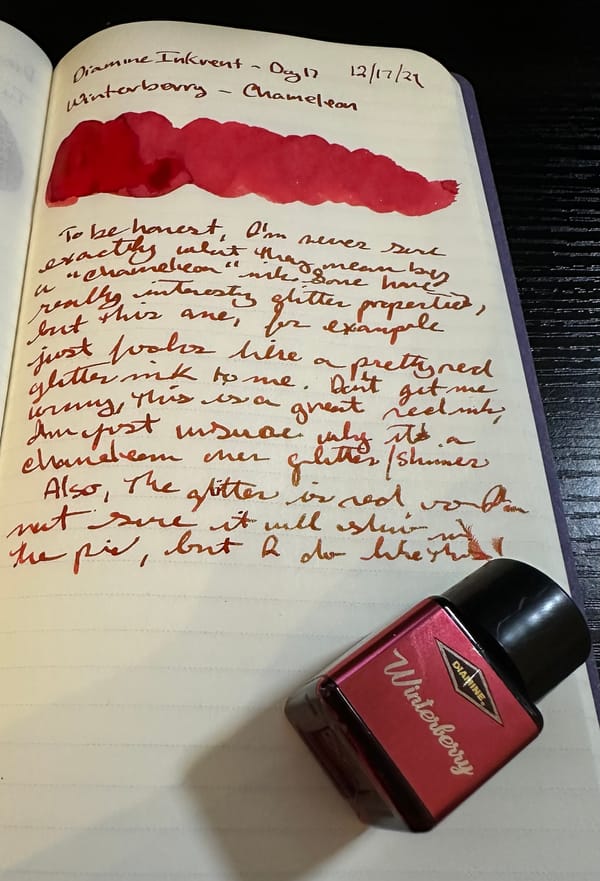 Diamine Inkvent - Day 17 12/17/24
Winterberry - Chameleon
To be honest, I'm never sure
exactly what they mean by
a "chameleon" ink. Some have
really interesty glitter properties,
but this one, for example
just looks like a pretty red
glitter ink to me. Don't get me
wrong, this is a great red ink,
I'm just unsure why it's a
chameleon over glitter/shimmer
Also, the glitter is red so I'm
not sure it will show in
the pic, but I do like this
DIAMINE
Winterberry